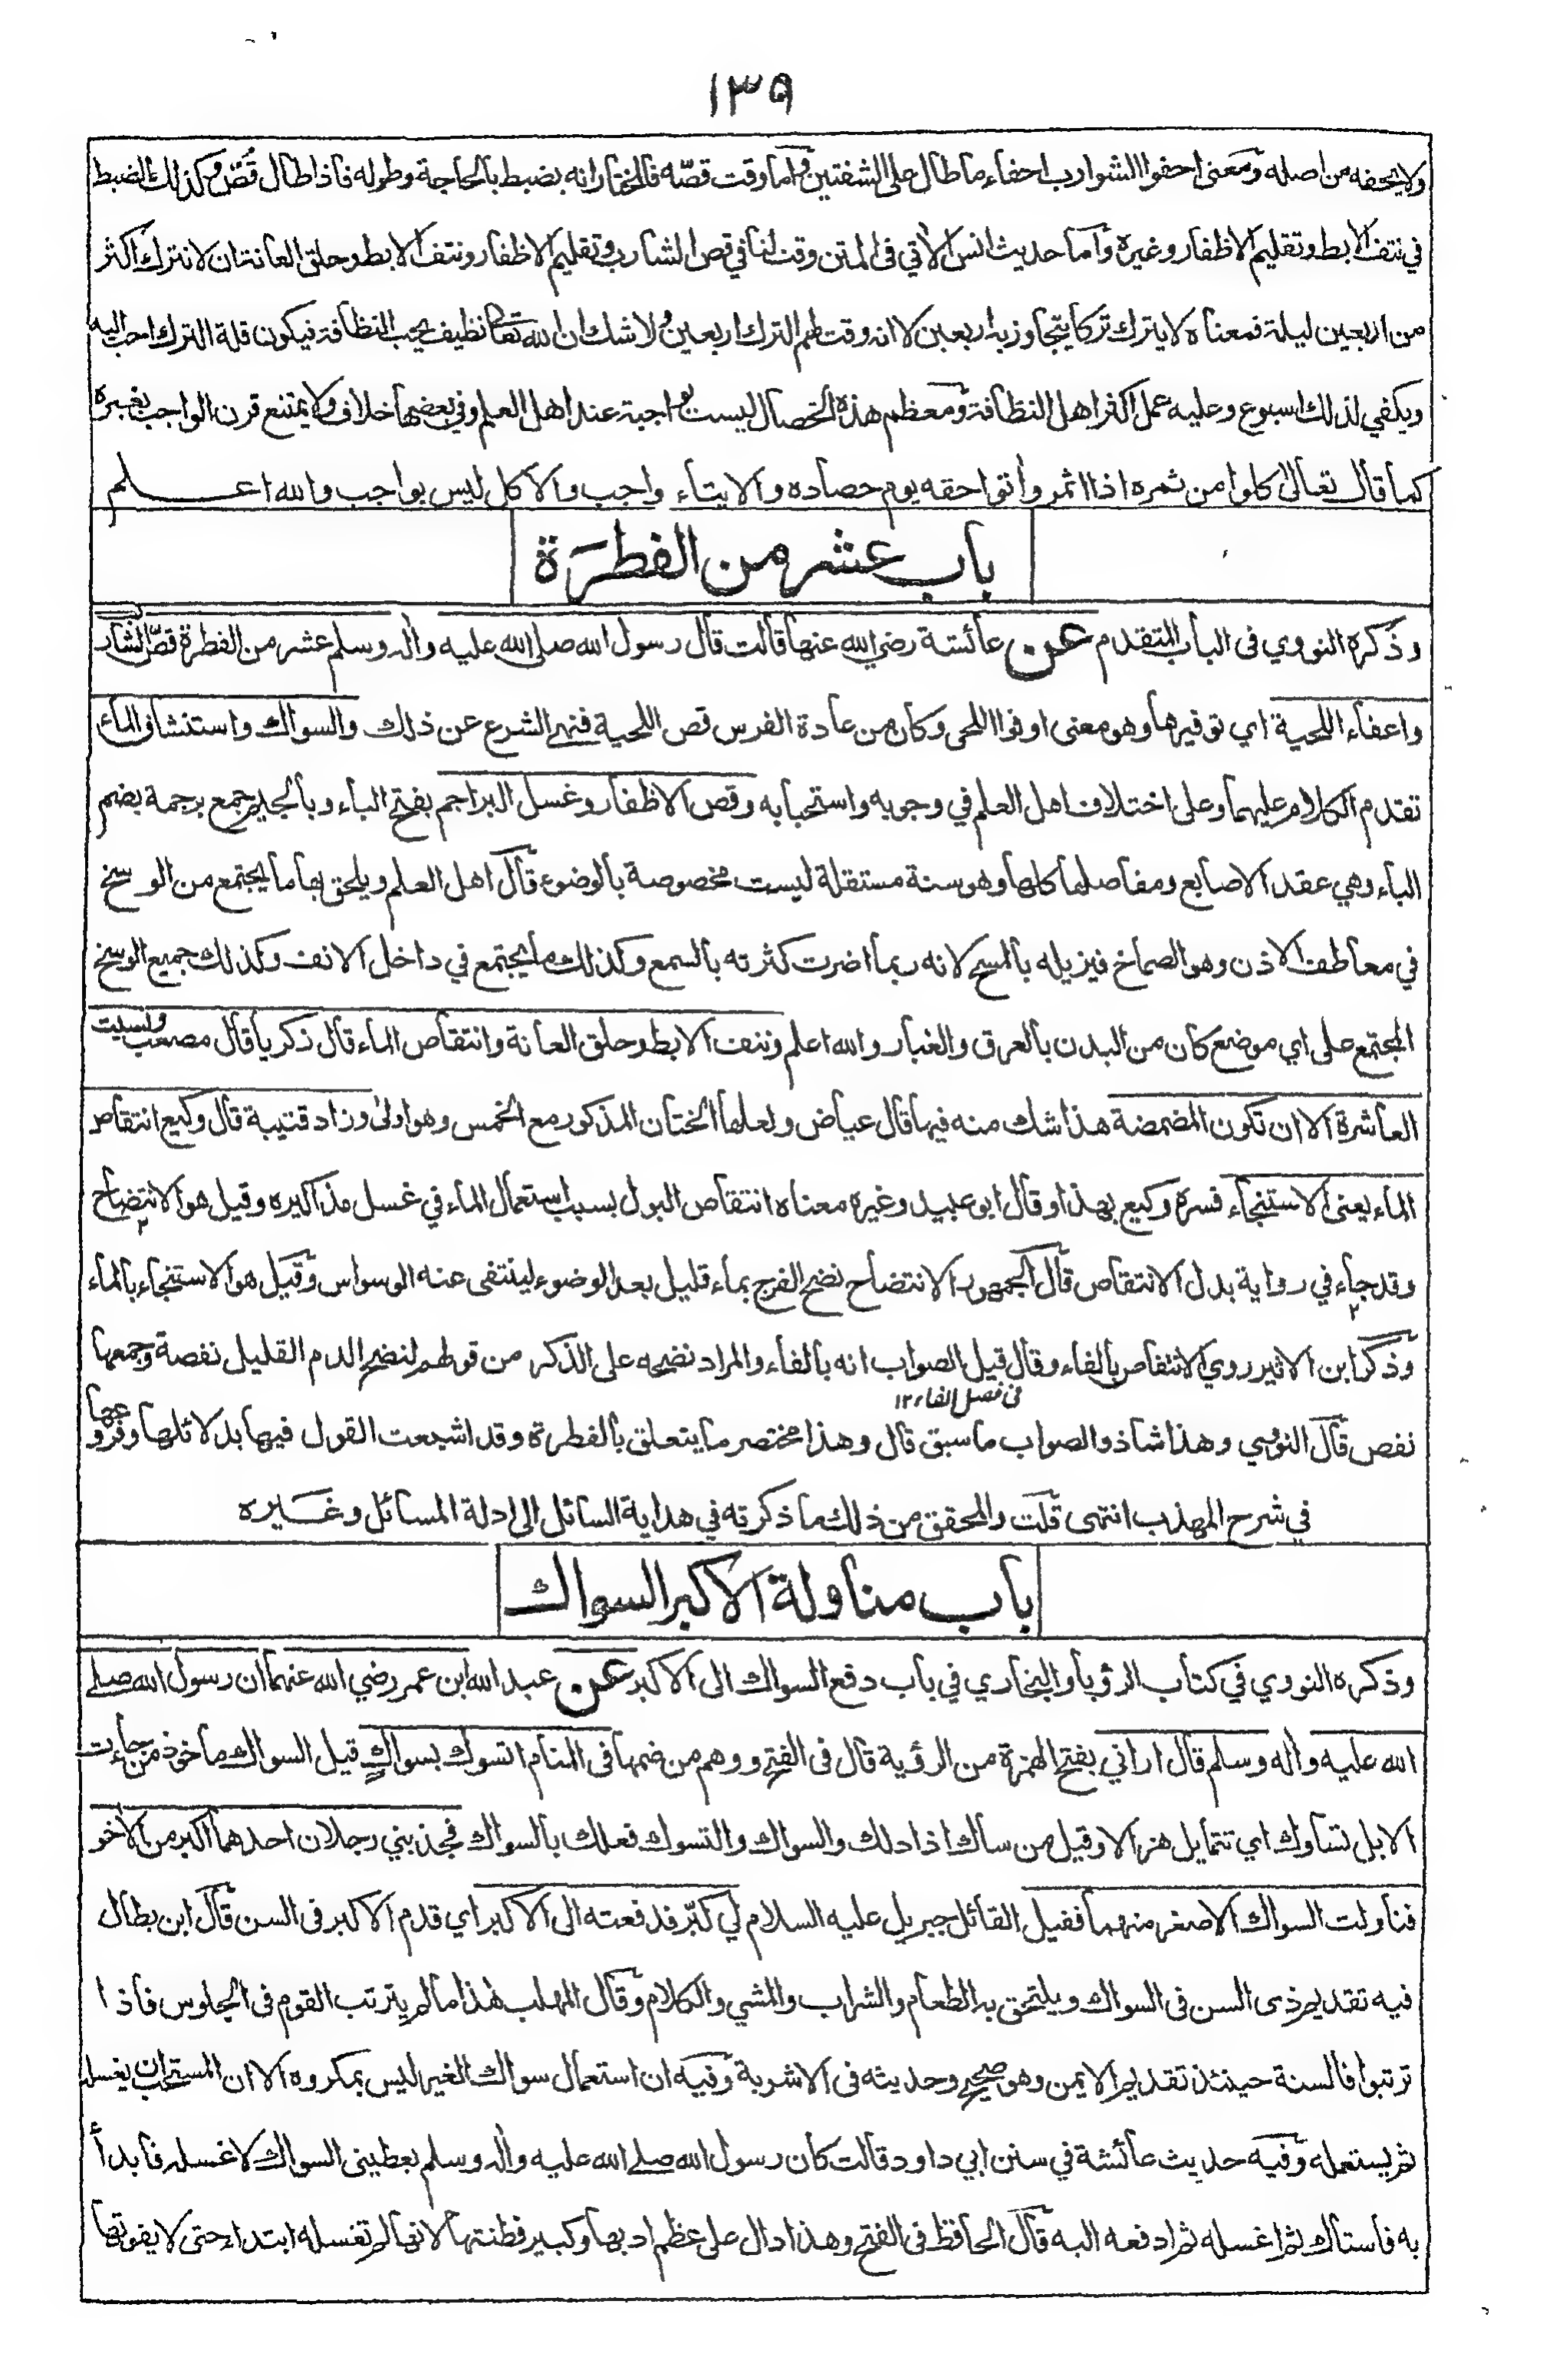 ١٣٩
ولا يحفه من اصله ومعنى احفوا الشوارب احفاء ما طال على الشفتين واما وقت قصّه فالمختار انه يضبط بالحاجة وطوله فاذا طال قُصّ وكذلك الضبط
في نتف الابط وتقليم الاظفار وغيره وأما حديث انس الآتي في المتن وقت لنا في قص الشارب وتقليم الاظفار ونتف الابط وحلق العانة ان لا نترك اكثر
من اربعين ليلة فمعناه لا يترك تركا يتجاوز به اربعين لا انه وقت لهم الترك اربعين ولا شك ان الله تعالى نظيف يحب النظافة فيكون قلة الترك احب اليه
ويكفي لذلك اسبوع وعليه عمل اكثر اهل النظافة ومعظم هذه الخصال ليست بواجبة عند اهل العلم وفي بعضها خلاف ولا يمتنع قرن الواجب بغيره
كما قال تعالى كلوا من ثمره اذا اثمر وأتوا حقه يوم حصاده والايتاء واجب والاكل ليس بواجب والله اعلم
باب عشر من الفطرة
وذكره النووي في الباب المتقدم عن عائشة رضي الله عنها قالت قال رسول الله صلى الله عليه وأله وسلم عشر من الفطرة قصّ الشارب
واعفاء اللحية اي توفيرها وهو معنى اوفوا اللحى وكان من عادة الفرس قص اللحية فنهى الشرع عن ذلك والسواك واستنشاق الماء
تقدم الكلام عليهما وعلى اختلاف اهل العلم في وجوبه واستحبابه وقص الاظفار وغسل البراجم بفتح الباء وبالجيم جمع برجمة بضم
الباء وهي عقد الاصابع ومفاصلها كلها وهو سنة مستقلة ليست مخصوصة بالوضوء قال اهل العلم ويلحق بها ما يجتمع من الوسخ
في معاطف الاذن وهو الصماخ فيزيله بالمسح لانه ربما اضرت كثرته بالسمع وكذلك ما يجتمع في داخل الانف وكذلك جميع الوسخ
المجتمع على اي موضع كان من البدن بالعرق والغبار والله اعلم ونتف الابط وحلق العانة وانتقاص الماء قال ذكريا قال مصعب ونسيت
العاشرة الا ان تكون المضمضة هذا شك منه فيها قال عياض ولعلها الختان المذكور مع الخمس وهو اولى وزاد قتيبة قال وكيع انتقاص
الماء يعنى الاستنجاء فسره وكيع بهذا وقال ابو عبيد وغيره معناه انتقاص البول بسبب استعمال الماء في غسل مذاكيره وقيل هو الانتضاح
وقد جاء في رواية بدل الانتقاص قال الجمهور الانتضاح نضح الفرج بماء قليل بعد الوضوء لينتفى عنه الوسواس وقيل هو الاستنجاء بالماء
وذكر ابن الاثير روي الانتقاص بالفاء وقال قيل الصواب انه بالفاء والمراد نضحه على الذكر من قولهم لنضح الدم القليل نفصة وجمعها
في فصل الفاء ١٢
نفص قال النووي وهذا شاذ والصواب ما سبق قال وهذا مختصر ما يتعلق بالفطرة وقد اشبعت القول فيها بدلائلها وفروعها
في شرح المهذب انتهى قلت والمحقق من ذلك ما ذكرته في هداية السائل الى ادلة المسائل وغيره
باب مناولة الاكبر السواك
وذكره النووي في كتاب الرؤيا والبخاري في باب دفع السواك الى الاكبر عن عبد الله ابن عمر رضي الله عنهما ان رسول الله صلى
الله عليه وأله وسلم قال اراني بفتح الهمزة من الرؤية قال في الفتح ووهم من ضمها في المنام اتسوك بسواكٍ قيل السواك ماخوذ من جاءت
الابل تساوك اي تتمايل هزالا وقيل من ساك اذا دلك والسواك والتسوك فعلك بالسواك فجذبني رجلان احدهما اكبر من الاخر
فناولت السواك الاصغر منهما فقيل القائل جبريل عليه السلام لي كبّر فدفعته الى الاكبر اي قدم الاكبر في السن قال ابن بطال
فيه تقديم ذى السن في السواك ويلتحق به الطعام والشراب والمشي والكلام وقال المهلب هذا ما لم يترتب القوم في الجلوس فاذا
ترتبوا فالسنة حينئذ تقديم الايمن وهو صحيح وحديثه في الاشربة وفيه ان استعمال سواك الغير ليس بمكروه الا ان المستحب ان يغسله
ثم يستعمله وفيه حديث عائشة في سنن ابي داود قالت كان رسول الله صلى الله عليه وأله وسلم يعطيني السواك لاغسله فابدأ
به فاستاك ثم اغسله ثم ادفعه اليه قال الحافظ في الفتح وهذا دال على عظم ادبها وكبير فطنتها لانها لم تغسله ابتداء حتى لا يفوتها